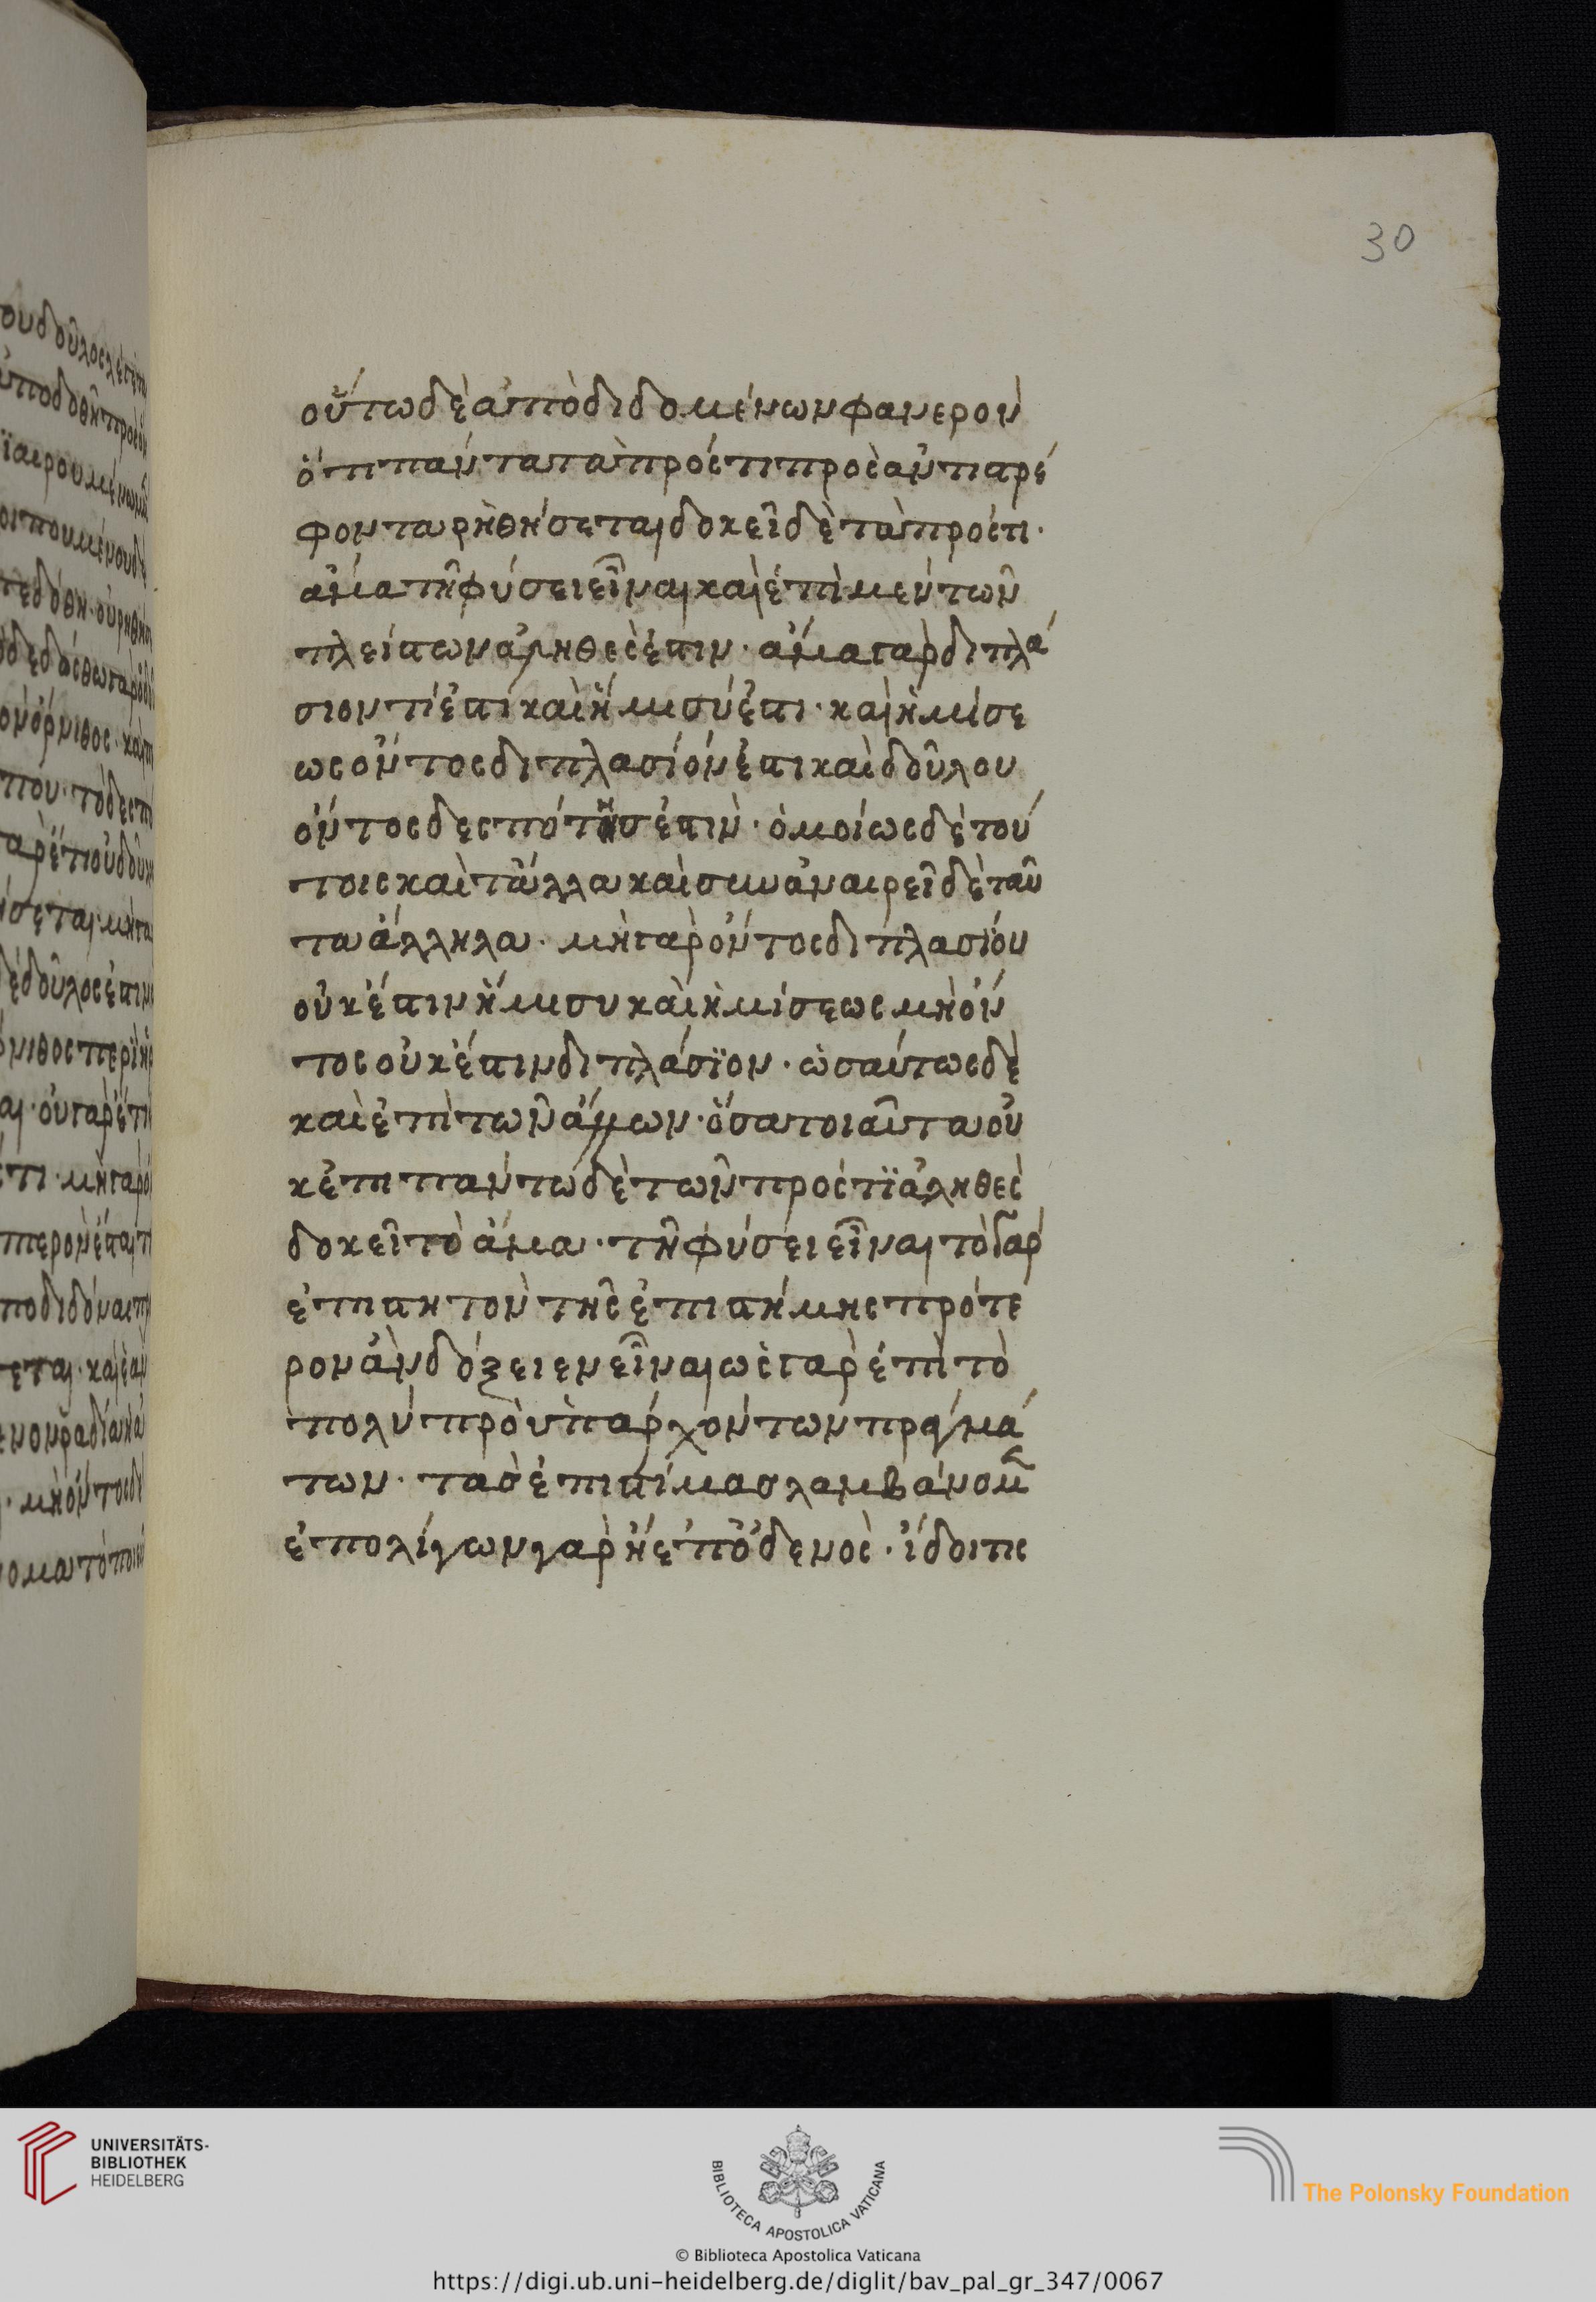 30
οὕτω δὲ ἀποδιδομένων φανερὸν
ὅτι πάντα τὰ πρός τι πρὸς ἀντιστρέ
φοντα ῥηθήσεται δοκεῖ δὲ τὰ πρός τι·
ἅμα τῇ φύσει εἶναι καὶ ἐπὶ μὲν τῶν
πλείστων ἀληθές ἐστιν· ἅμα γὰρ διπλά
σιον τί ἐστι καὶ ἥμισύ ἐστι· καὶ ἡμίσε
ως ὄντος διπλασίόν ἐστι καὶ δούλου
ὄντος δεσπότης ἐστὶν· ὁμοίως δὲ τού
τοις καὶ τἄλλα καὶ συναναιρεῖ δὲ ταῦ
τα ἄλληλα· μὴ γὰρ ὄντος διπλασίου
οὐκ ἔστιν ἥμισυ καὶ ἡμίσεως μὴ ὄν
τος οὐκ ἔστιν διπλάσϊον· ὡσαύτως δὲ
καὶ ἐπὶ τῶν ἄλλων· ὅσα τοιαῦτα οὐ
κ ἐπι πάντω δὲ τῶν πρός τϊ ἀληθὲς
δοκεῖ τὸ ἅμα· τῇ φύσει εἶναι τὸ γὰρ
ἐπιστητὸν τῆς ἐπιστήμης πρότε
ρον ἂν δόξειεν εἶναι ὡς γὰρ ἐπὶ τὸ
πολὺ προϋπαρχόντων πραγμά
των· τὰσ ἐπιστήμασ λαμβάνομ̑
ἐπ ολίγων γὰρ ἢ ἐπ ὀδενὸς· ἴδοι τις
UNIVERSITÄTS-
BIBLIOTHEK
HEIDELBERG
BIBLIOTECA APOSTOLICA VATICANA
The Polonsky Foundation
© Biblioteca Apostolica Vaticana
https://digi.ub.uni-heidelberg.de/diglit/bav_pal_gr_347/0067